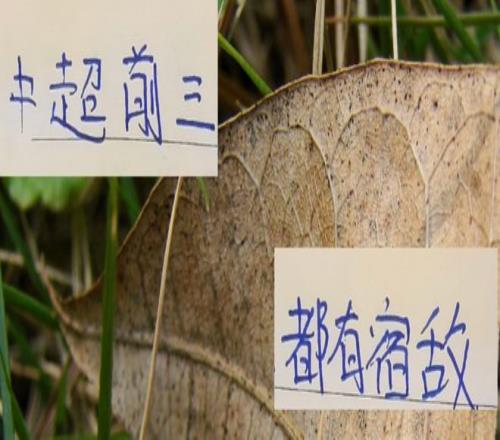 中超前三
都有宿敌